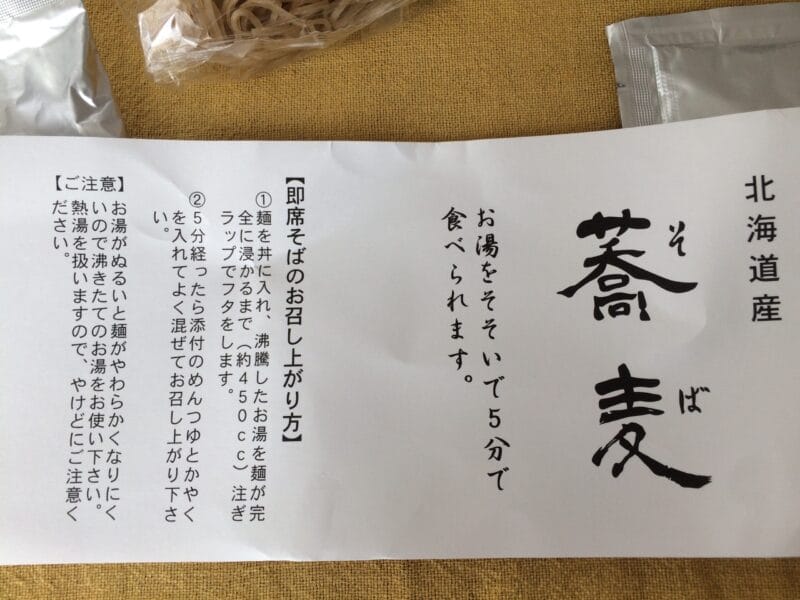 北海道産
蕎麦
そば
お湯をそそいで5分で
食べられます。
【即席そばのお召し上がり方】
①麺を丼に入れ、沸騰したお湯を麺が完
全に浸かるまで(約450cc)注ぎ
ラップでフタをします。
②5分経ったら添付のめんつゆとかやく
を入れてよく混ぜてお召し上がり下さ
い。
【ご注意】
お湯がぬるいと麺がやわらかくなりにく
いので沸きたてのお湯をお使い下さい。
熱湯を扱いますので、やけどにご注意く
ださい。